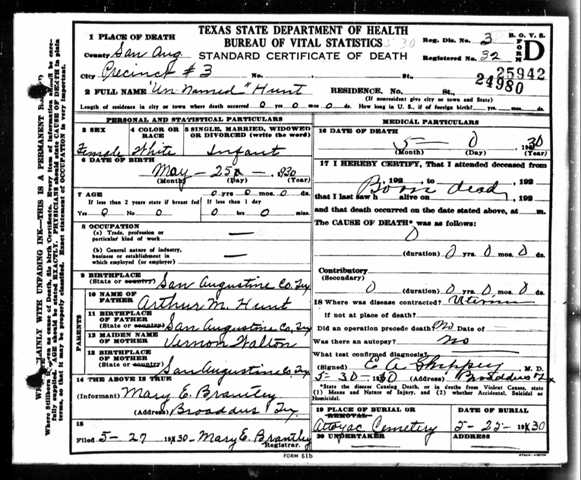 TEXAS STATE DEPARTMENT OF HEALTH
BUREAU OF VITAL STATISTICS
STANDARD CERTIFICATE OF DEATH
Reg. Dis. No. 3
Registered No. 32
B. O. V. S.
FORM D
25942
24980
1 PLACE OF DEATH
County San Aug
City Precinct #3 No. St.,
2 FULL NAME "Un Named" Hunt RESIDENCE. No. St.,
(If nonresident give city or town and State)
Length of residence in city or town where death occurred 0 yrs 0 mos 0 ds. How long in U. S., if of foreign birth? yrs. mos. ds.
PERSONAL AND STATISTICAL PARTICULARS
3 SEX 4 COLOR OR RACE 5 SINGLE, MARRIED, WIDOWED OR DIVORCED (write the word)
Female White Infant
6 DATE OF BIRTH
May - 25 - 1930
(Month) (Day) (Year)
7 AGE 0 yrs 0 mos. 0 ds.
If less than 2 years state if breast fed If less than 1 day
Yes 0 No 0 0 hrs 0 mins.
8 OCCUPATION
(a) Trade, profession or particular kind of work —
(b) General nature of industry, business or establishment in which employed (or employer) —
9 BIRTHPLACE
(State or country) San Augustine Co. Tex
PARENTS
10 NAME OF FATHER Arthur M. Hunt
11 BIRTHPLACE OF FATHER
(State or country) San Augustine Co, Tex
12 MAIDEN NAME OF MOTHER Vernon Walton
13 BIRTHPLACE OF MOTHER
(State or country) San Augustine Co Tex
14 THE ABOVE IS TRUE
(Informant) Mary E. Brantley
(Address) Broaddus Tex
15
Filed 5-27 1930 Mary E. Brantley
Registrar.
MEDICAL PARTICULARS
16 DATE OF DEATH
5 - 0 30
(Month) (Day) (Year)
17 I HEREBY CERTIFY, That I attended deceased from
, 192 , to , 192
that I last saw h alive on , 192
Born dead
and that death occurred on the date stated above, at m.
The CAUSE OF DEATH* was as follows:
0
(duration) 0 yrs 0 mos 0 ds.
Contributory
(Secondary)
0 (duration) 0 yrs 0 mos 0 ds.
18 Where was disease contracted?
if not at place of death?
Did an operation precede death? No Date of —
Was there an autopsy? No
What test confirmed diagnosis?
(Signed) M. D.
5-30-1930 (Address) Broaddus Tex
*State the disease Causing Death, or in deaths from Violent Causes, state (1) Means and Nature of Injury, and (2) whether Accidental, Suicidal or Homicidal.
19 PLACE OF BURIAL OR REMOVAL DATE OF BURIAL
Attoyac Cemetery 5-25-1930
20 UNDERTAKER ADDRESS
FORM 51b